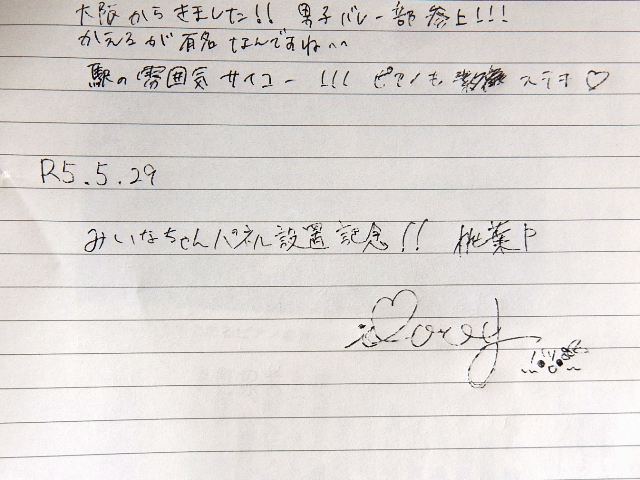 大阪からきました!! 男子バレー部参上!!!
かえるが有名なんですね^^
駅の雰囲気サイコー!!! ピアノも ステキ♡
R5.5.29
みいなちゃんパネル設置記念!! 桃葉P